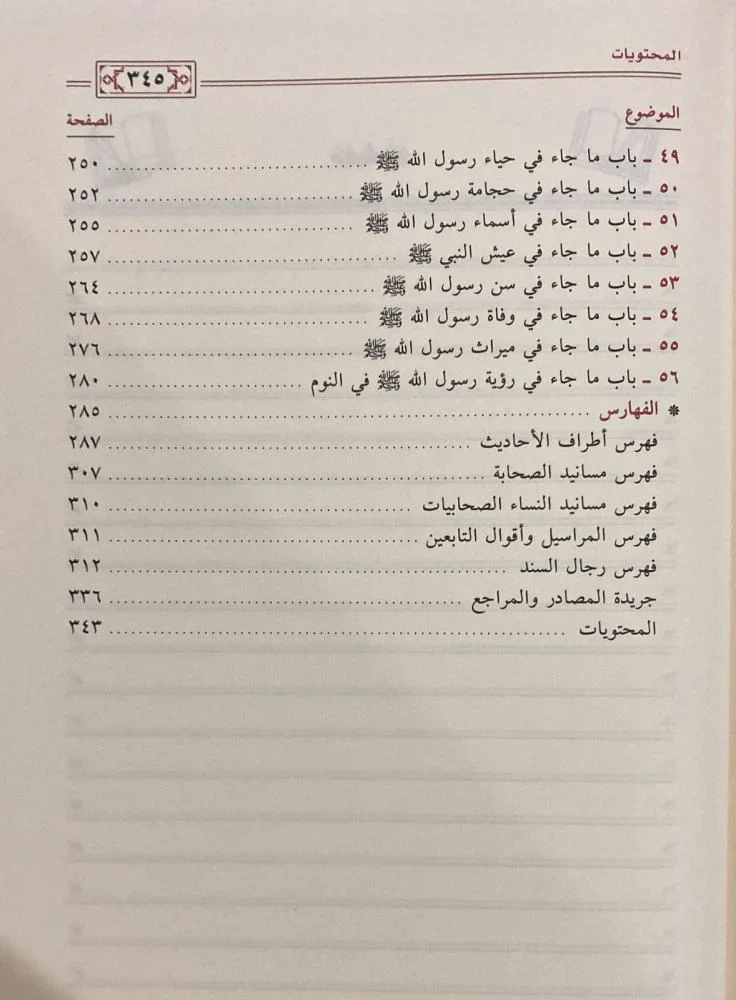 المحتويات
٣٤٥
الموضوع الصفحة
٤٩ ـ باب ما جاء في حياء رسول الله ﷺ ........ ٢٥٠
٥٠ ـ باب ما جاء في حجامة رسول الله ﷺ ........ ٢٥٢
٥١ ـ باب ما جاء في أسماء رسول الله ﷺ ........ ٢٥٥
٥٢ ـ باب ما جاء في عيش النبي ﷺ ........ ٢٥٧
٥٣ ـ باب ما جاء في سن رسول الله ﷺ ........ ٢٦٤
٥٤ ـ باب ما جاء في وفاة رسول الله ﷺ ........ ٢٦٨
٥٥ ـ باب ما جاء في ميراث رسول الله ﷺ ........ ٢٧٦
٥٦ ـ باب ما جاء في رؤية رسول الله ﷺ في النوم ........ ٢٨٠
* الفهارس ........ ٢٨٥
فهرس أطراف الأحاديث ........ ٢٨٧
فهرس مسانيد الصحابة ........ ٣٠٧
فهرس مسانيد النساء الصحابيات ........ ٣١٠
فهرس المراسيل وأقوال التابعين ........ ٣١١
فهرس رجال السند ........ ٣١٢
جريدة المصادر والمراجع ........ ٣٣٦
المحتويات ........ ٣٤٣